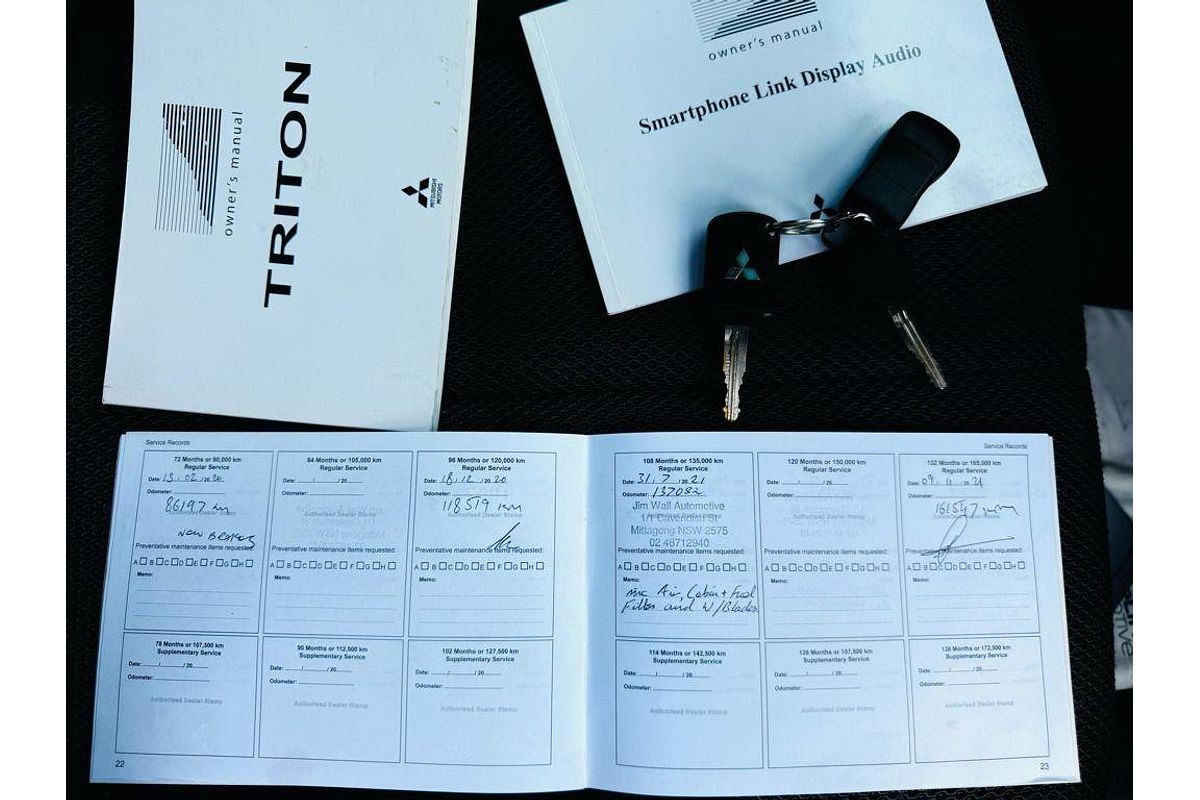 owner's manual
TRITON
MITSUBISHI
MOTORS
owner's manual
Smartphone Link Display Audio
Service Records
72 Months or 90,000 km
Regular Service
Date: 13 / 02 / 20 20
Odometer:
86197 km
Authorised Dealer Stamp
NEW BRAKES
Preventative maintenance items requested:
A B C D E F G H
Memo:
84 Months or 105,000 km
Regular Service
Date: / / 20
Odometer:
Authorised Dealer Stamp
Preventative maintenance items requested:
A B C D E F G H
Memo:
96 Months or 120,000 km
Regular Service
Date: 18 / 12 / 20 20
Odometer:
118519 km
Authorised Dealer Stamp
Preventative maintenance items requested:
A B C D E F G H
Memo:
78 Months or 107,500 km
Supplementary Service
Date: / / 20
Odometer:
Authorised Dealer Stamp
90 Months or 112,500 km
Supplementary Service
Date: / / 20
Odometer:
Authorised Dealer Stamp
102 Months or 127,500 km
Supplementary Service
Date: / / 20
Odometer:
Authorised Dealer Stamp
22
Service Records
108 Months or 135,000 km
Regular Service
Date: 31 / 7 / 20 21
Odometer: 137082
Jim Wall Automotive
1/1 Cavendish St
Mittagong NSW 2575
02 48712940
Preventative maintenance items requested:
A B C D E F G H
Memo:
Air, Cabin + Fuel
Filters and W/Blades
120 Months or 150,000 km
Regular Service
Date: / / 20
Odometer:
Authorised Dealer Stamp
Preventative maintenance items requested:
A B C D E F G H
Memo:
132 Months or 165,000 km
Regular Service
Date: 09 / 11 / 20 21
Odometer:
161547 km
Authorised Dealer Stamp
Preventative maintenance items requested:
A B C D E F G H
Memo:
114 Months or 142,500 km
Supplementary Service
Date: / / 20
Odometer:
Authorised Dealer Stamp
126 Months or 157,500 km
Supplementary Service
Date: / / 20
Odometer:
Authorised Dealer Stamp
138 Months or 172,500 km
Supplementary Service
Date: / / 20
Odometer:
Authorised Dealer Stamp
23